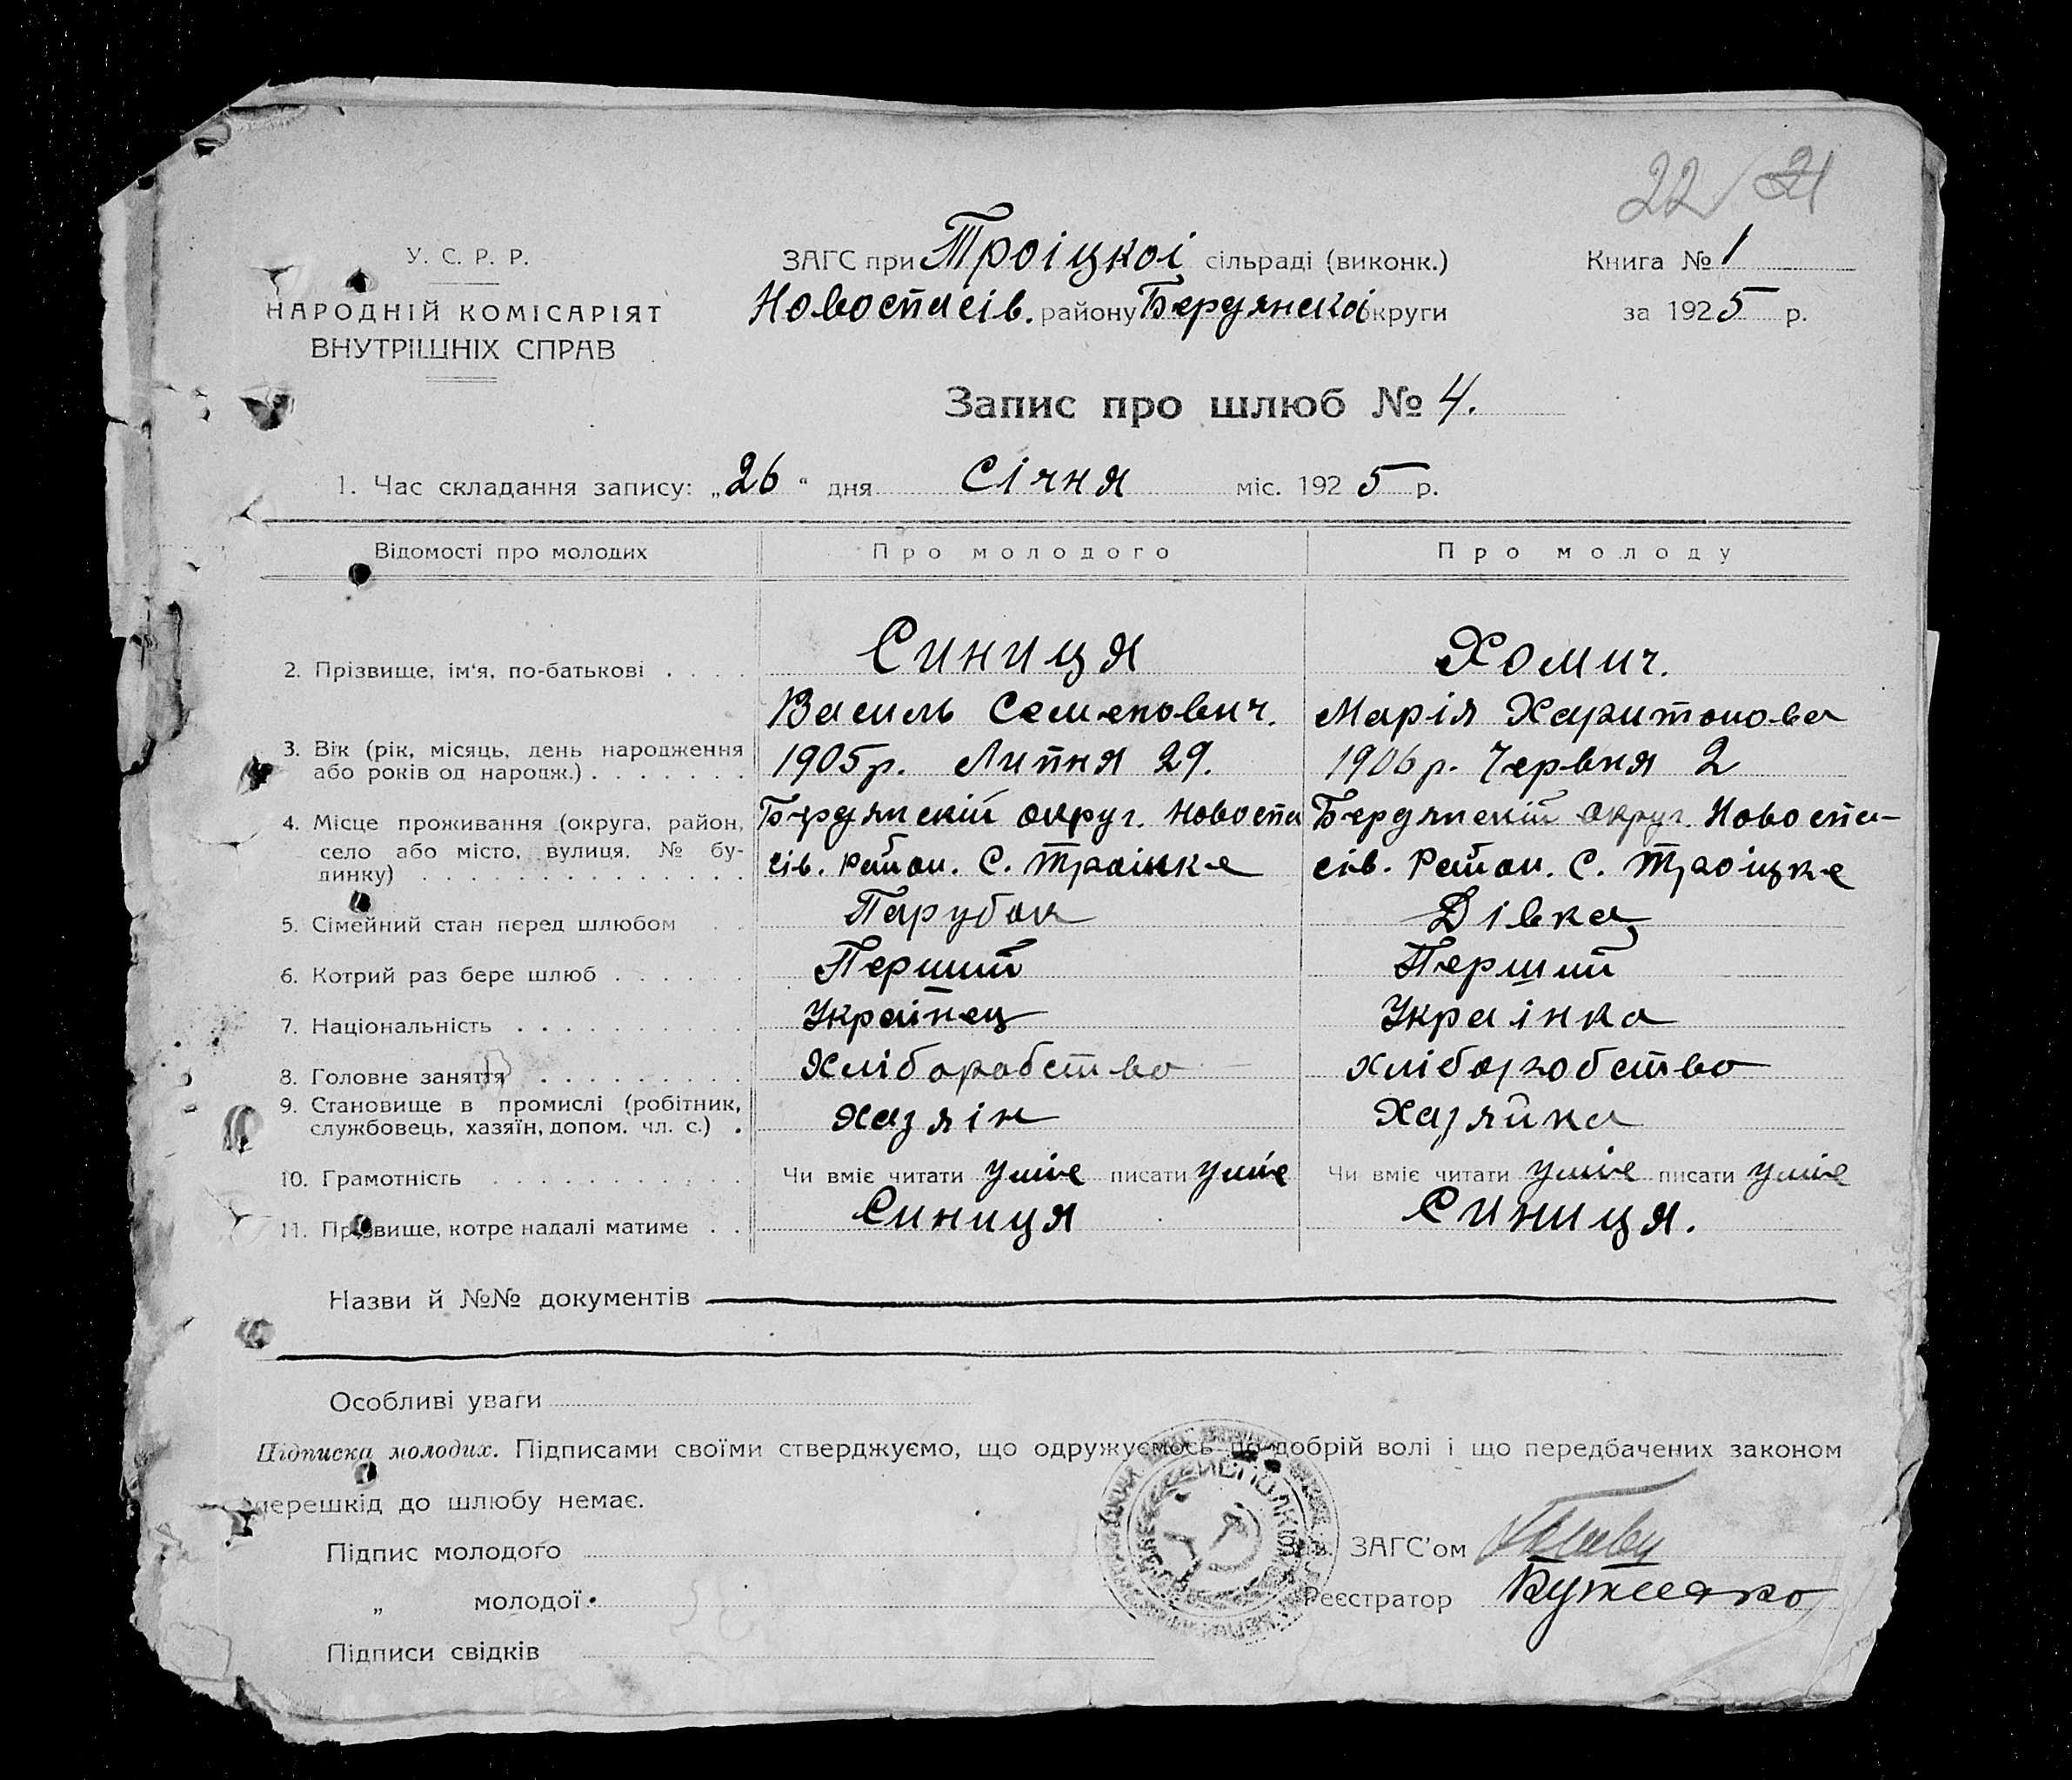 22 21
У. С. Р. Р.
НАРОДНІЙ КОМІСАРІЯТ
ВНУТРІШНІХ СПРАВ
ЗАГС при Троіцкоі сільраді (виконк.)
Новоспасів. району Бердянскоі округи
Книга № 1
за 1925 р.
Запис про шлюб № 4.
1. Час складання запису: „26“ дня Січня міс. 1925 р.
Відомості про молодих Про молодого Про молоду
2. Прізвище, ім‘я, по-батькові . . . . Синиця Хомич.
Василь Семенович. Марія Харитонова
3. Вік (рік, місяць, день народження
або років од народж.) . . . . . . . 1905р. Липня 29. 1906р. Червня 2
4. Місце проживання (округа, район, Бердянскій округ. Новоспа Бердянскій округ. Новоспа-
село або місто, вулиця, № бу- сів. Район. С. Троіцке сів. Район. С. Троіцке
динку) . . . . . . . . . . . . . .
5. Сімейний стан перед шлюбом . . Парубок Дівка
6. Котрий раз бере шлюб . . . . . . Перший Перший
7. Національність . . . . . . . Українец Украінка
8. Головне заняття . . . . . . . . . Хліборобство хліборобство
9. Становище в промислі (робітник,
службовець, хазяїн, допом. чл. с.) . Хазяін Хазяйка
10. Грамотність . . . . . . . . . . . Чи вміє читати уміе писати уміе Чи вміє читати уміе писати уміе
11. Прізвище, котре надалі матиме . . Синиця Синиця.
Назви й №№ документів
Особливі уваги
Підписка молодих. Підписами своїми стверджуємо, що одружуємось по добрій волі і що передбачених законом
перешкід до шлюбу немає.
Підпис молодого
Зав. ЗАГС’ом
„ молодої
Реєстратор
Підписи свідків